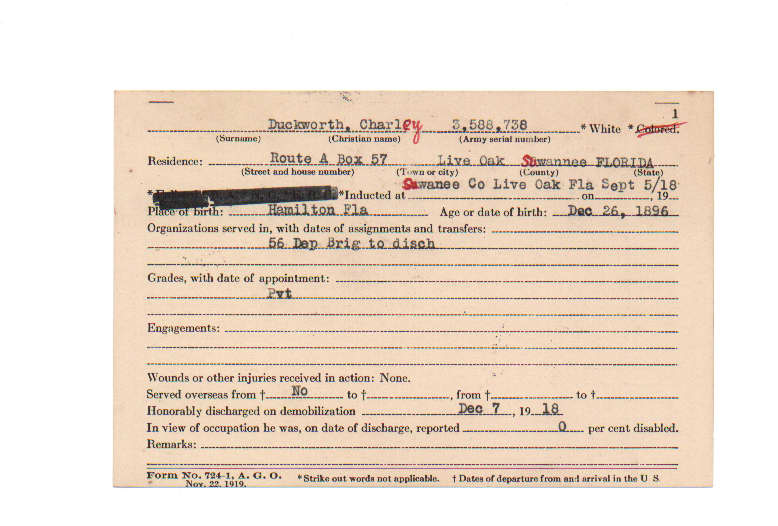 1
Duckworth, Charley 3,588,738 *White *Colored.
(Surname) (Christian name) (Army serial number)
Residence: Route A Box 57 Live Oak Suwannee FLORIDA
(Street and house number) (Town or city) (County) (State)
Suwanee Co Live Oak Fla Sept 5/18
*Inducted at on , 19
Place of birth: Hamilton Fla Age or date of birth: Dec 26, 1896
Organizations served in, with dates of assignments and transfers:
56 Dep Brig to disch
Grades, with date of appointment:
Pvt
Engagements:
Wounds or other injuries received in action: None.
Served overseas from † No to †, from † to †
Honorably discharged on demobilization Dec 7, 19 18
In view of occupation he was, on date of discharge, reported 0 per cent disabled.
Remarks:
Form No. 724-1, A. G. O. *Strike out words not applicable. † Dates of departure from and arrival in the U S
Nov. 22, 1919.